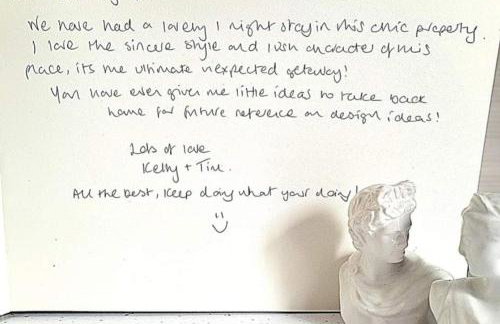 We have had a lovely 1 night stay in this chic property.
I love the sincere style and lush character of this
place, its the ultimate unexpected getaway!
You have even given me little ideas to take back
home for future reference on design ideas!
Lots of love
Kelly + Tim.
All the best, keep doing what your doing!